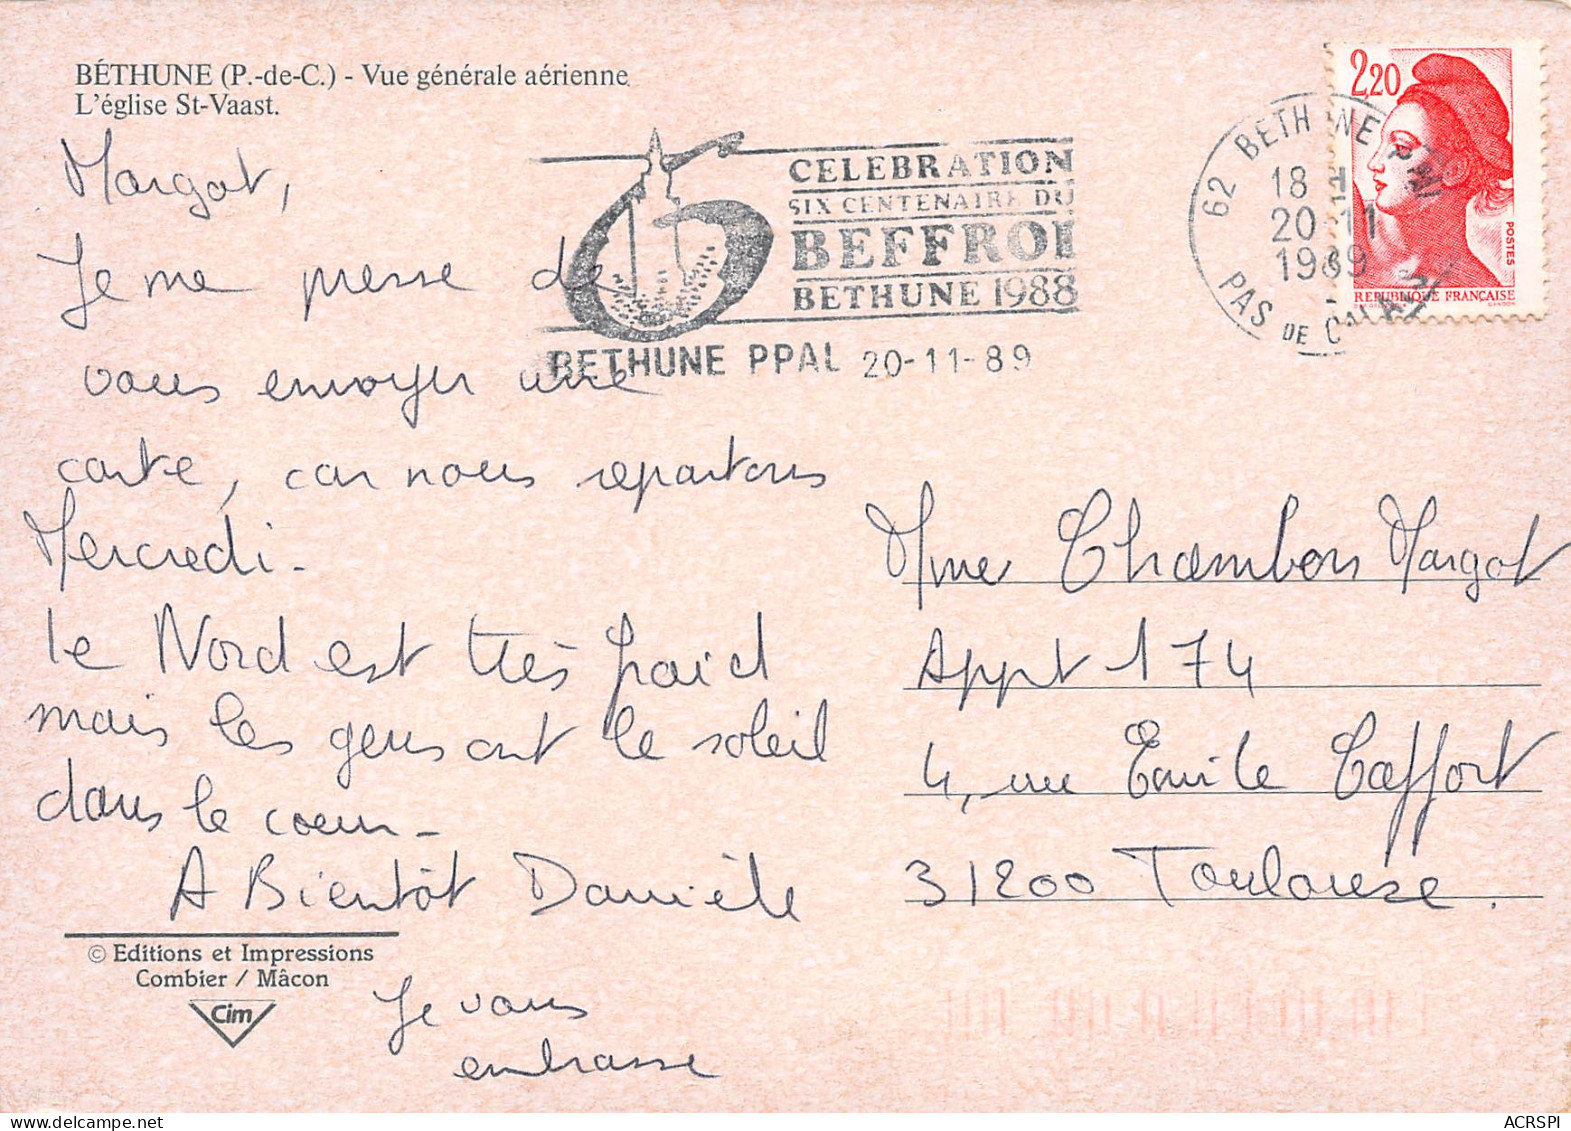 BÉTHUNE (P.-de-C.) - Vue générale aérienne
L'église St-Vaast.
Margot,
Je me presse de
vous envoyer une
carte, car nous repartons
Mercredi.
le Nord est très froid
mais les gens ont le soleil
dans le coeur -
A Bientôt Danièle
Je vous
embrasse
© Editions et Impressions
Combier / Mâcon
Cim
CELEBRATION
SIX CENTENAIRE DU
BEFFROI
BETHUNE 1988
BETHUNE PPAL 20-11-89
62 BETHUNE PPAL
18 H
20-11
1989
PAS DE CALAIS
2,20
POSTES
REPUBLIQUE FRANÇAISE
GANDON
Mme Chambon Margot
Appt 174
4, rue Emile Caffort
31200 Toulouse.
ACRSPI